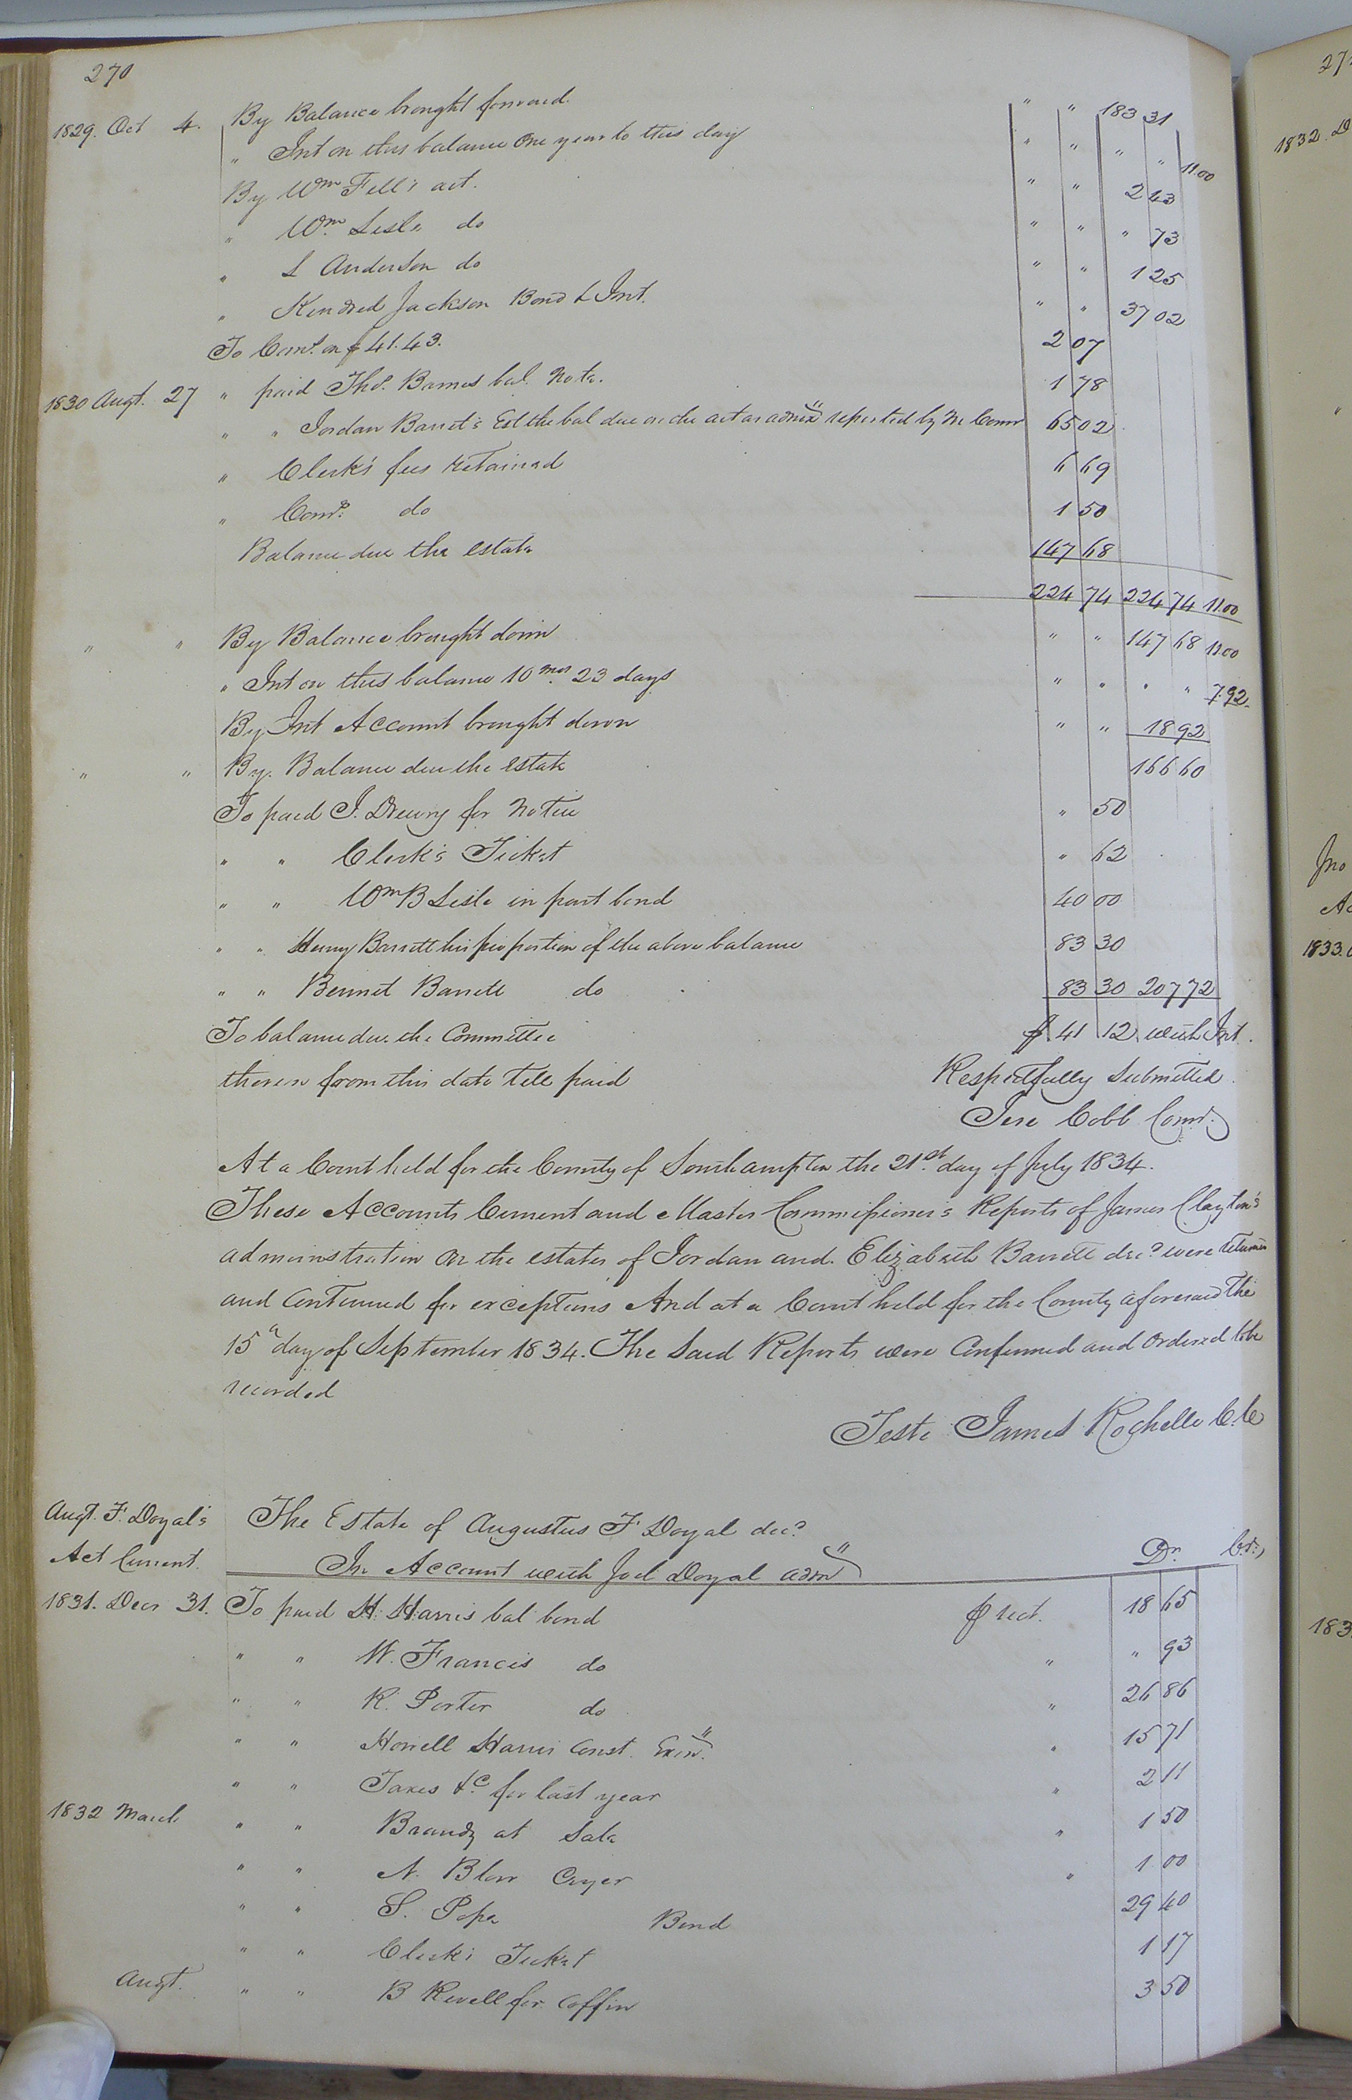 270
1829. Oct 4. By Balance brought forward " " 183 31
" Int on this balance One year to this day " " " " 11.00
By Wm Fell's act. " " 2 43
" Wm Lesle do " " " 73
" L Anderson do " " 1 25
" Kendred Jackson Bond & Int. " " 37 02
To Coms. on $41.43. 2 07
1830 Augt. 27 " paid Thos. Barnes bal. Note. 1 78
" " Jordan Barret's Est the bal due on the act as admx reported by Mr Comr 65 02
" Clerk's fees retained 6 69
" Comr. do 1 50
Balance due the estate 147 68
224 74 224 74 11.00
" " By Balance brought down " " 147 68 11.00
" Int on this balance 10 mos 23 days " " " " 7.92
By Int Account brought down " " 18 92
" " By Balance due the estate 166 60
To paid J. Drewry for Notice " 50
" " Clerk's Ticket " 62
" " Wm B Lesle in part bond 40 00
" " Henry Barrett his proportion of the above balance 83 30
" " Bennet Barrett do 83 30 207 72
To balance due the Committee $ 41 12 with Int.
thereon from this date till paid Respectfully Submitted
Jere Cobb Comr.
At a Court held for the County of Southampton the 21st. day of July 1834.
These Accounts Current and Master Commissioner's Reports of James Clayton's
administration on the estates of Jordan and Elizabeth Barrett decd. were returned
and Continued for exceptions And at a Court held for the County aforesaid the
15" day of September 1834. The Said Reports were Confirmed and Ordered to be
recorded
Teste James Rochelle C.C.
Augt. F. Doyal's The Estate of Augustus F Doyal decd.
Act Current. In Account with Joel Doyal admr Dr. Cr.
1831. Decr 31. To paid H. Harris bal bond p rect. 18 65
" " W. Francis do " " 93
" " R. Porter do " 26 86
" " Howell Harris Const. Exon. " 15 71
" " Taxes &c for last year " 2 11
1832 March " " Brandy at Sale " 1 50
" " N. Blow Cryer " 1 00
" " S. Pope Bond 29 40
" " Clerk's Ticket 1 17
Augt. " " B Revell for Coffin 3 50
1832. D
Jno
1833.
183